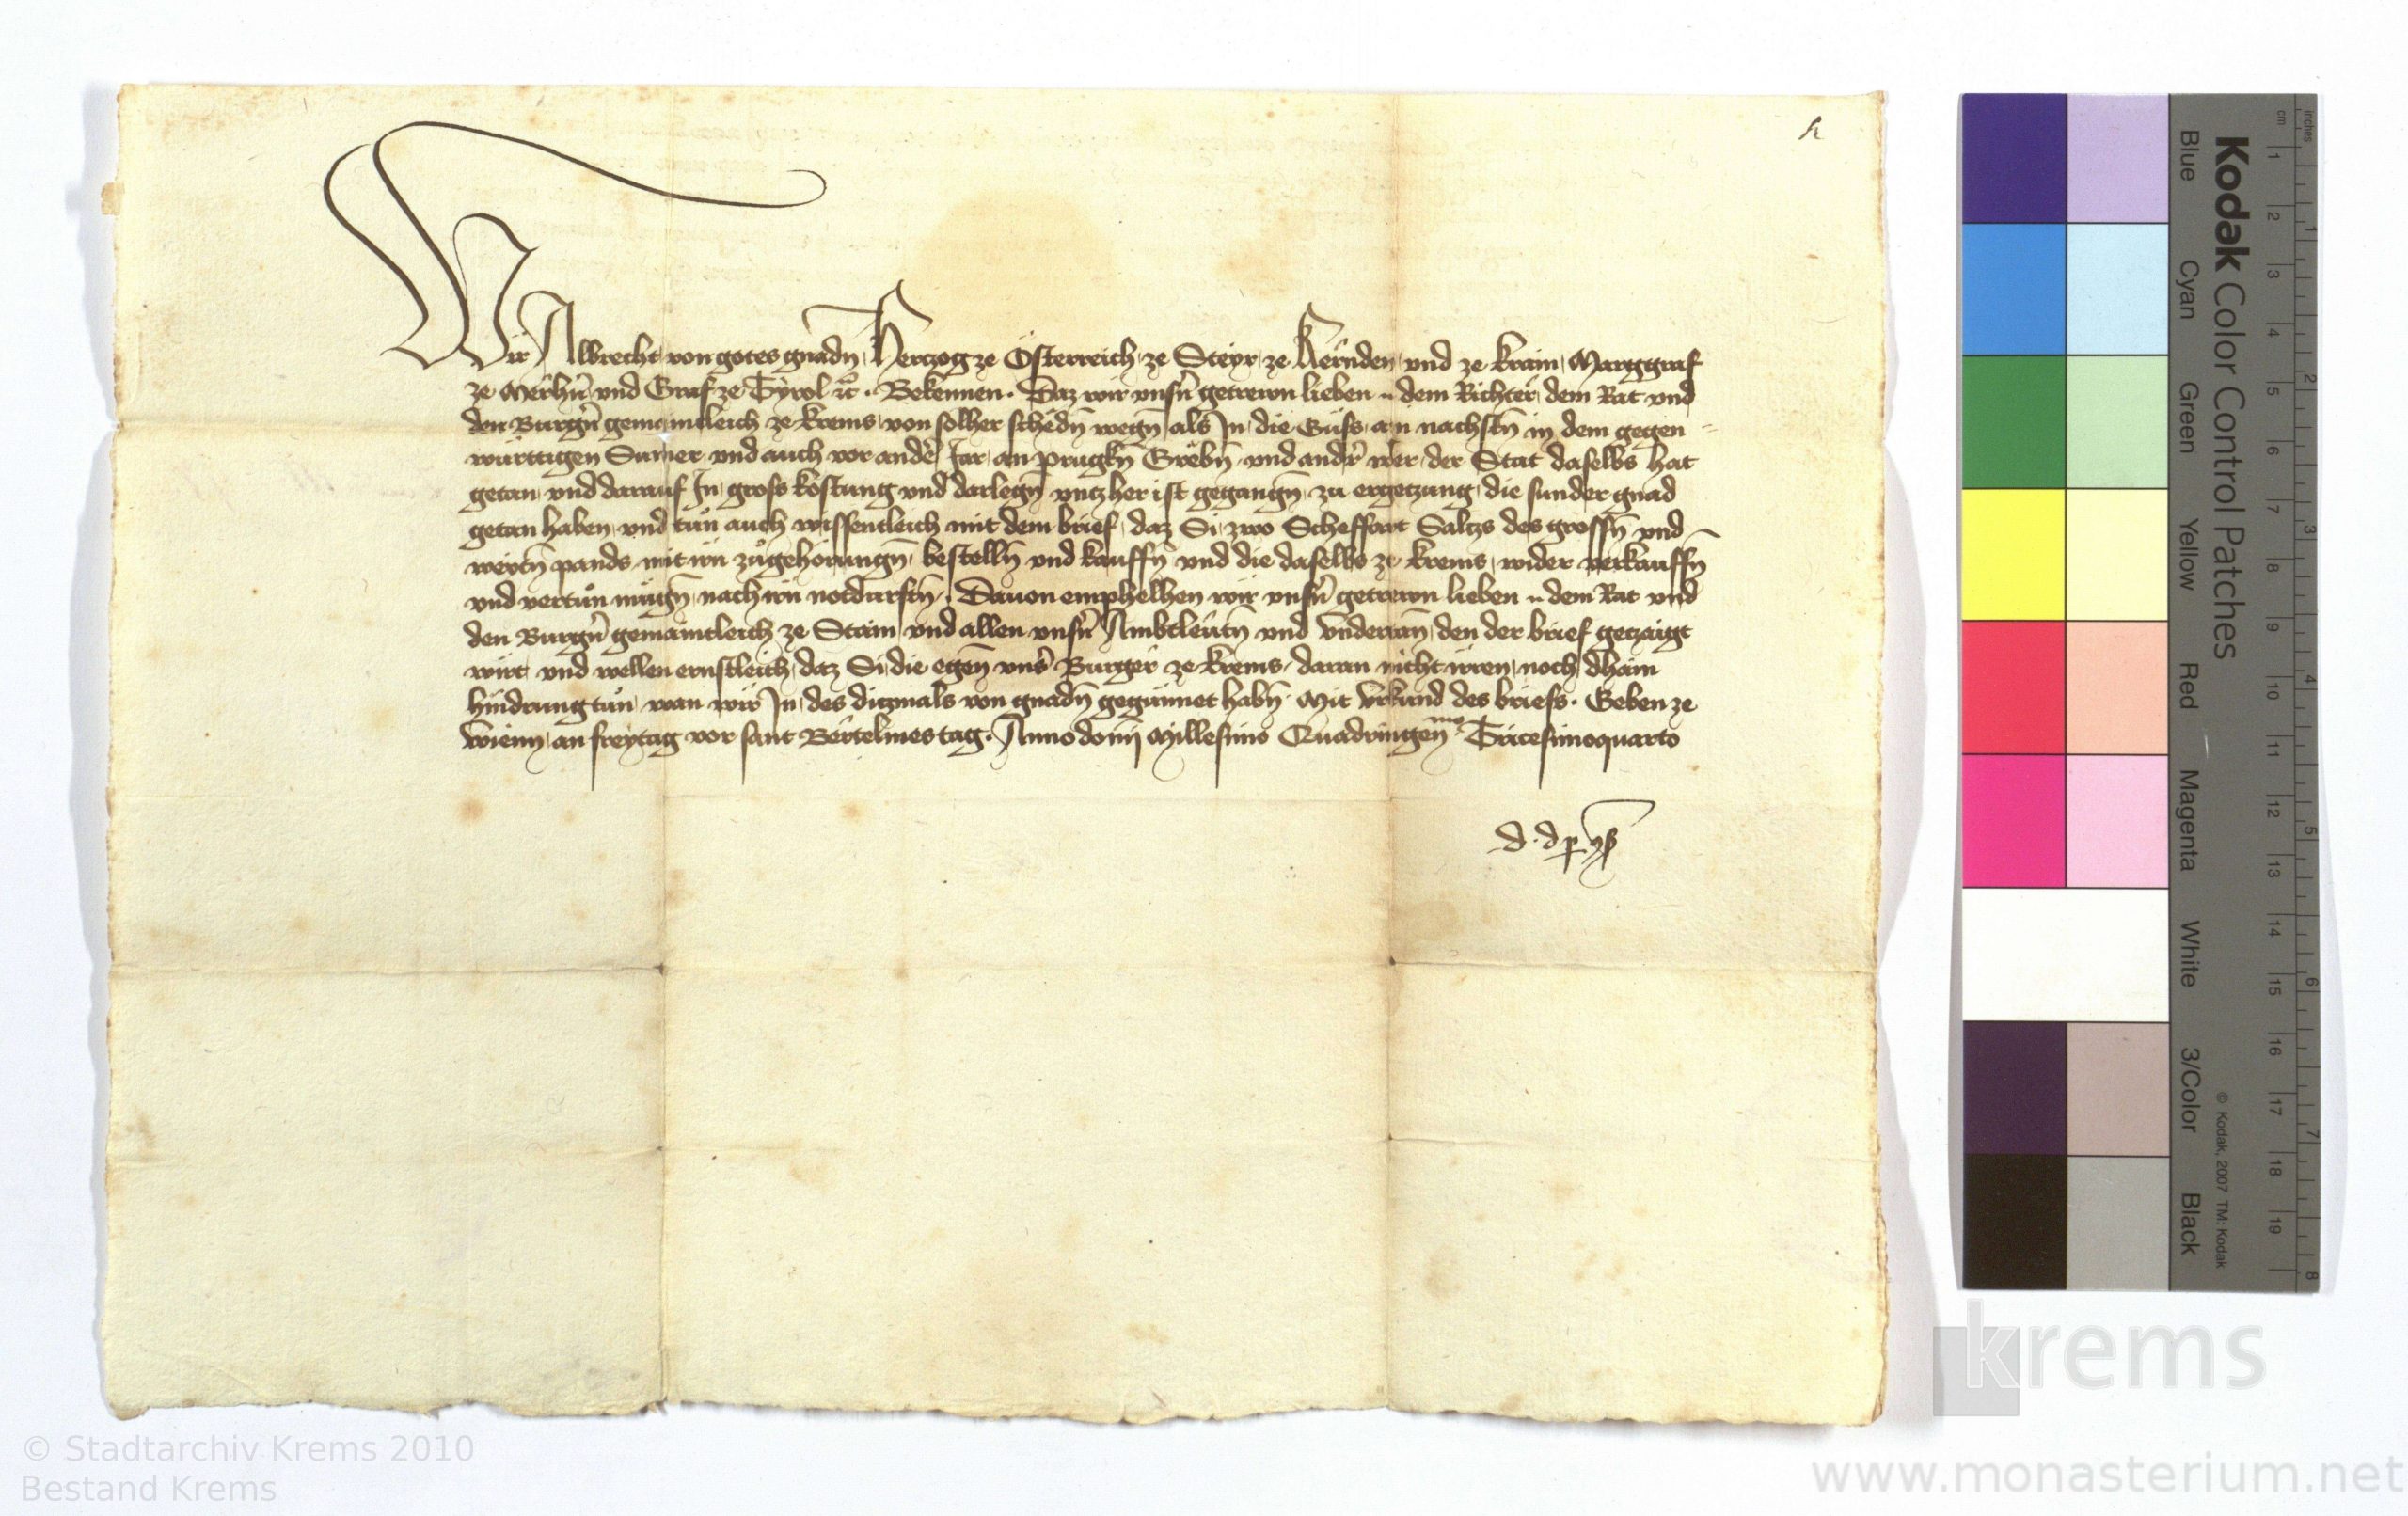 Wir Albrecht von gotes gnadn̄ Herczog ze Österreich ze Steyr ze Kêrnden und ze Krain, Marggraf
ze Mêrhn̄ und Graf ze Tyrol ꝛc̄ . Bekennen . Daz wir unsn̄ getrewn lieben .. dem Richter, dem Rat und
den Burgn̄ gemaintleich ze Krems, von solher schêdn̄ wegn̄ als In die Güss an nachstn̄ in dem gegen =
württigen Sumer und auch vor anderr Jar, an prugkn̄ Grêbn̄ und andr̄ wer der Stat daselbs hat
getan und darauf In gross kostung und darlegn̄ untzher ist gegangn̄, zu ergetzung, die sunder gnad
getan haben, und tůn auch wissentleich mit dem brief, daz Si zwo Scheffart Saltzs des grossn̄ und
weytn̄ pands mit irn zůgehörungn̄, bestelln̄ und kauffn̄ und die daselbs ze Krems, wider verkauffn̄
und vertůn mügn̄ nach irn notdurftn̄ . Dauon emphelhen wir unsn̄ getrewn lieben .. dem Rat und
den Burgn̄ gemaintleich ze Stain und allen unsn̄ Ambtleütn̄ und undertan̄, den der brief getzaigt
wirt und wellen ernstleich, daz Si die egen̄ uns̄ Burger ze Krems daran nicht irren, noch dhain
hindrung tůn, wan wir In des ditzmals von gnadn̄ gegünnet habn̄ . Mit urkund des briefs . Geben ze
Wienn, an freytag vor sant Bêrtelmes tag . Anno domī Millesimo Quadringen̄mo Tricesimoquarto
d . d p
Kodak Color Control Patches
© Kodak, 2007 TM: Kodak
Blue Cyan Green Yellow Red Magenta White 3/Color Black
inches 1 2 3 4 5 6 7 8
cm 1 2 3 4 5 6 7 8 9 10 11 12 13 14 15 16 17 18 19
krems
© Stadtarchiv Krems 2010
Bestand Krems
www.monasterium.net